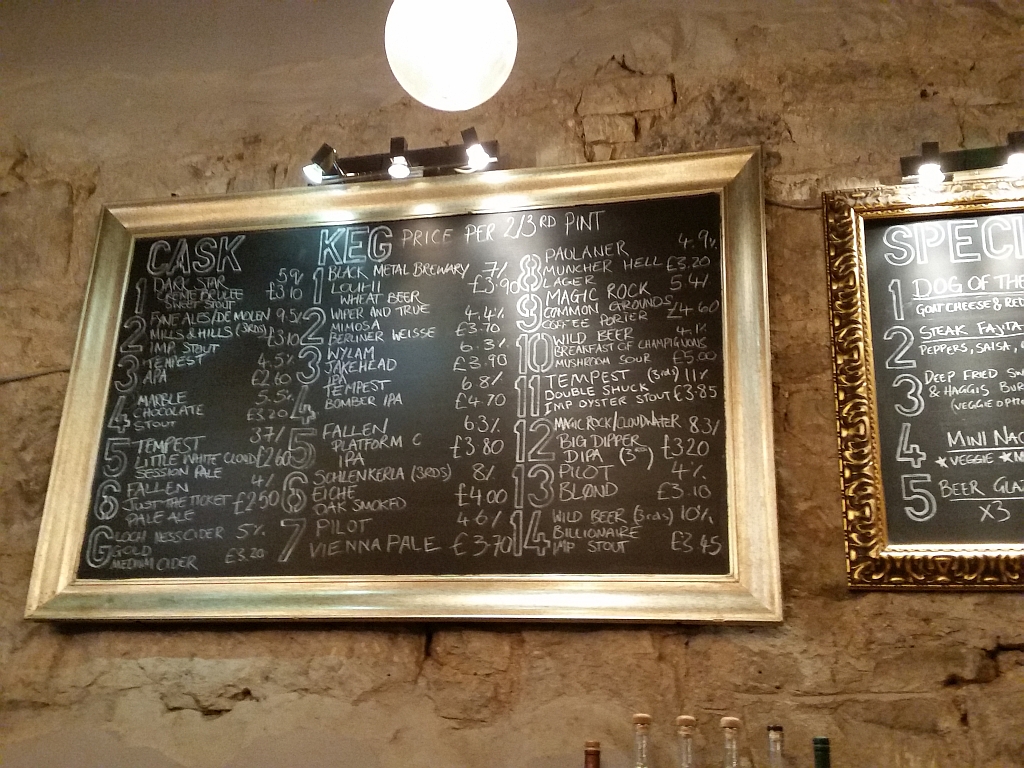 CASK
1 DARK STAR 5%
CRÈME BRULEE £3.10
SWEET STOUT
2 FYNE ALES/DE MOLEN 9.5%
MILLS & HILLS (3RDS) £3.10
IMP STOUT
3 TEMPEST 4.5%
APA £2.60
4 MARBLE 5.5%
CHOCOLATE £3.20
STOUT
5 TEMPEST 3.7%
LITTLE WHITE CLOUD £2.60
SESSION PALE
6 FALLEN 4%
JUST THE TICKET £2.50
PALE ALE
G LOCH NESS CIDER 5%
GOLD £3.20
MEDIUM CIDER
KEG PRICE PER 2/3RD PINT
1 BLACK METAL BREWARY 7%
£3.90
WHEAT BEER
2 WIPER AND TRUE 4.4%
MIMOSA £3.70
BERLINER WEISSE
3 WYLAM 6.3%
JAKEHEAD £3.90
IPA
4 TEMPEST 6.8%
BOMBER IPA £4.70
5 FALLEN 6.3%
PLATFORM C £3.80
IPA
6 SCHLENKERLA (3RDS) 8%
EICHE £4.00
OAK SMOKED
7 PILOT 4.6%
VIENNA PALE £3.70
8 PAULANER 4.9%
MUNCHER HELL £3.20
LAGER
9 MAGIC ROCK 5.4%
COMMON GROUNDS £4.60
COFFEE PORTER
10 WILD BEER 4.1%
BREAKFAST OF CHAMPIGNONS
MUSHROOM SOUR £5.00
11 TEMPEST (3rds) 11%
DOUBLE SHUCK
IMP OYSTER STOUT £3.85
12 MAGIC ROCK/CLOUDWATER 8.3%
BIG DIPPER £3.20
DIPA (3rds)
13 PILOT 4%
BLØND £3.10
14 WILD BEER (3rds) 10%
BILLIONAIRE
IMP STOUT £3.45
SPECI
1 DOG OF THE
GOAT CHEESE & RED
2 STEAK FAJITA
PEPPERS, SALSA,
3 DEEP FRIED
& HAGGIS BUR
(VEGGIE OPTIO
4 MINI NAC
★VEGGIE ★M
5 BEER GLAZ
X3